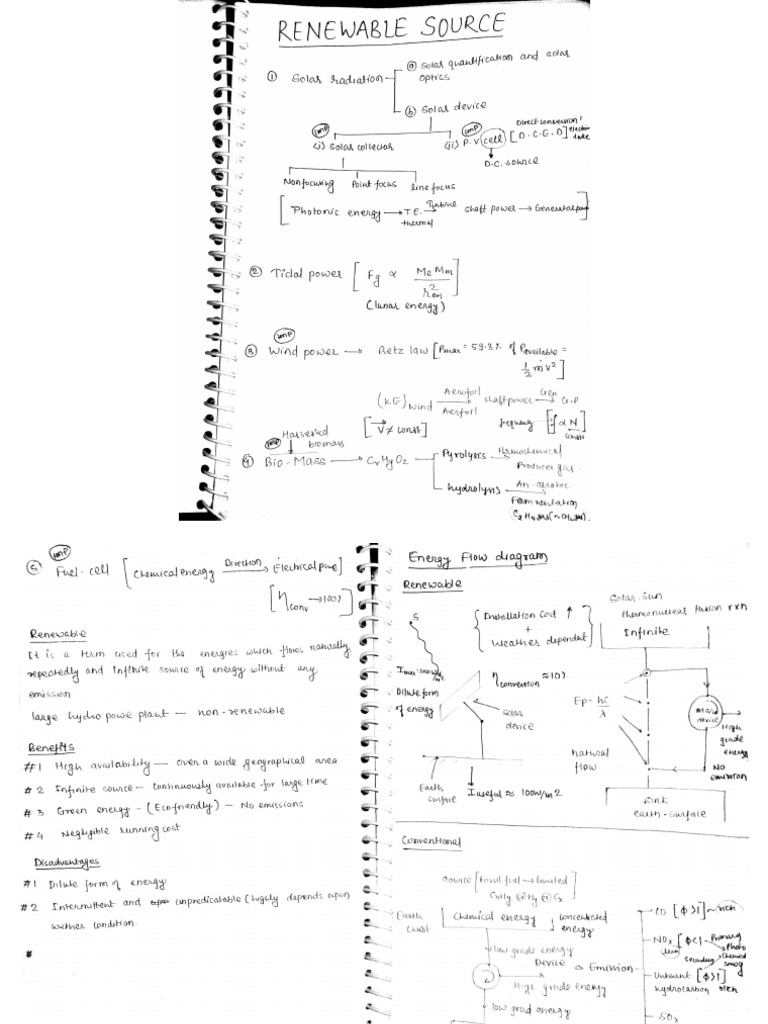 RENEWABLE SOURCE
① Solar radiation
ⓐ Solar quantification and solar optics
ⓑ Solar device
imp
(i) Solar collector
imp
(ii) P.V cell [D.C.E.D]
Direct conversion
D.C. source
Nonfocusing Point focus line focus
[Photonic energy → T.E. thermal → Turbine shaft power →
② Tidal power [Fg ∝ Me Mm / r²em]
(lunar energy)
imp
③ Wind power → Betz law [Pmax = 59.3% of Pavailable = 1/2 ṁv²]
(KE)wind Aerofoil shaft power → Gen G.P
Aerofoil
[V ≠ const] frequency [f ∝ N const]
Harvested biomass
imp
④ Bio-Mass → CxHyOz
Pyrolysis → Thermochemical
Producer gas
hydrolysis → An-aerobic
Fermentation
⑤ imp
Fuel-cell [Chemical energy Direction → Electrical power]
[ηconv → 100%]
Renewable
It is a term used for the energies which flows naturally,
repeatedly and Infinite source of energy without any
emission
large hydro powe plant — non-renewable
Benefits
#1 High availability — over a wide geographical area
#2 Infinite source — continuously available for large time
#3 Green energy - (Ecofriendly) - No emissions
#4 Negligible running cost
Disadvantages
#1 Dilute form of energy
#2 Intermittent and unpredicatable (highly depends upon
wether condition.
#
Energy Flow diagram
Renewable
S
{Installation cost ↑
+
weather dependent}
Dilute form
of energy
ηconversion ≈ 10%
solar
device
Earth
surface
Iuseful ≈ 100w/m2
Solar-sun
thermonuclear fusion rxn
Infinite
Ep = hc/λ
device
High
grade
energy
natural
flow
No
emission
Sink
earth-surface
Conventional
source [fossil fuel → limited
Earth
crust
Chemical energy
concentrated
energy
low grade energy
Device
→ Emission
High grade energy
low grad energy
CO [ϕ>1] ~ rich
NOx [ϕ<1]
lean
Primary
Photo
chemical
smog
secondary
Unburnt [ϕ>1]
hydrocarbon rich
SOx